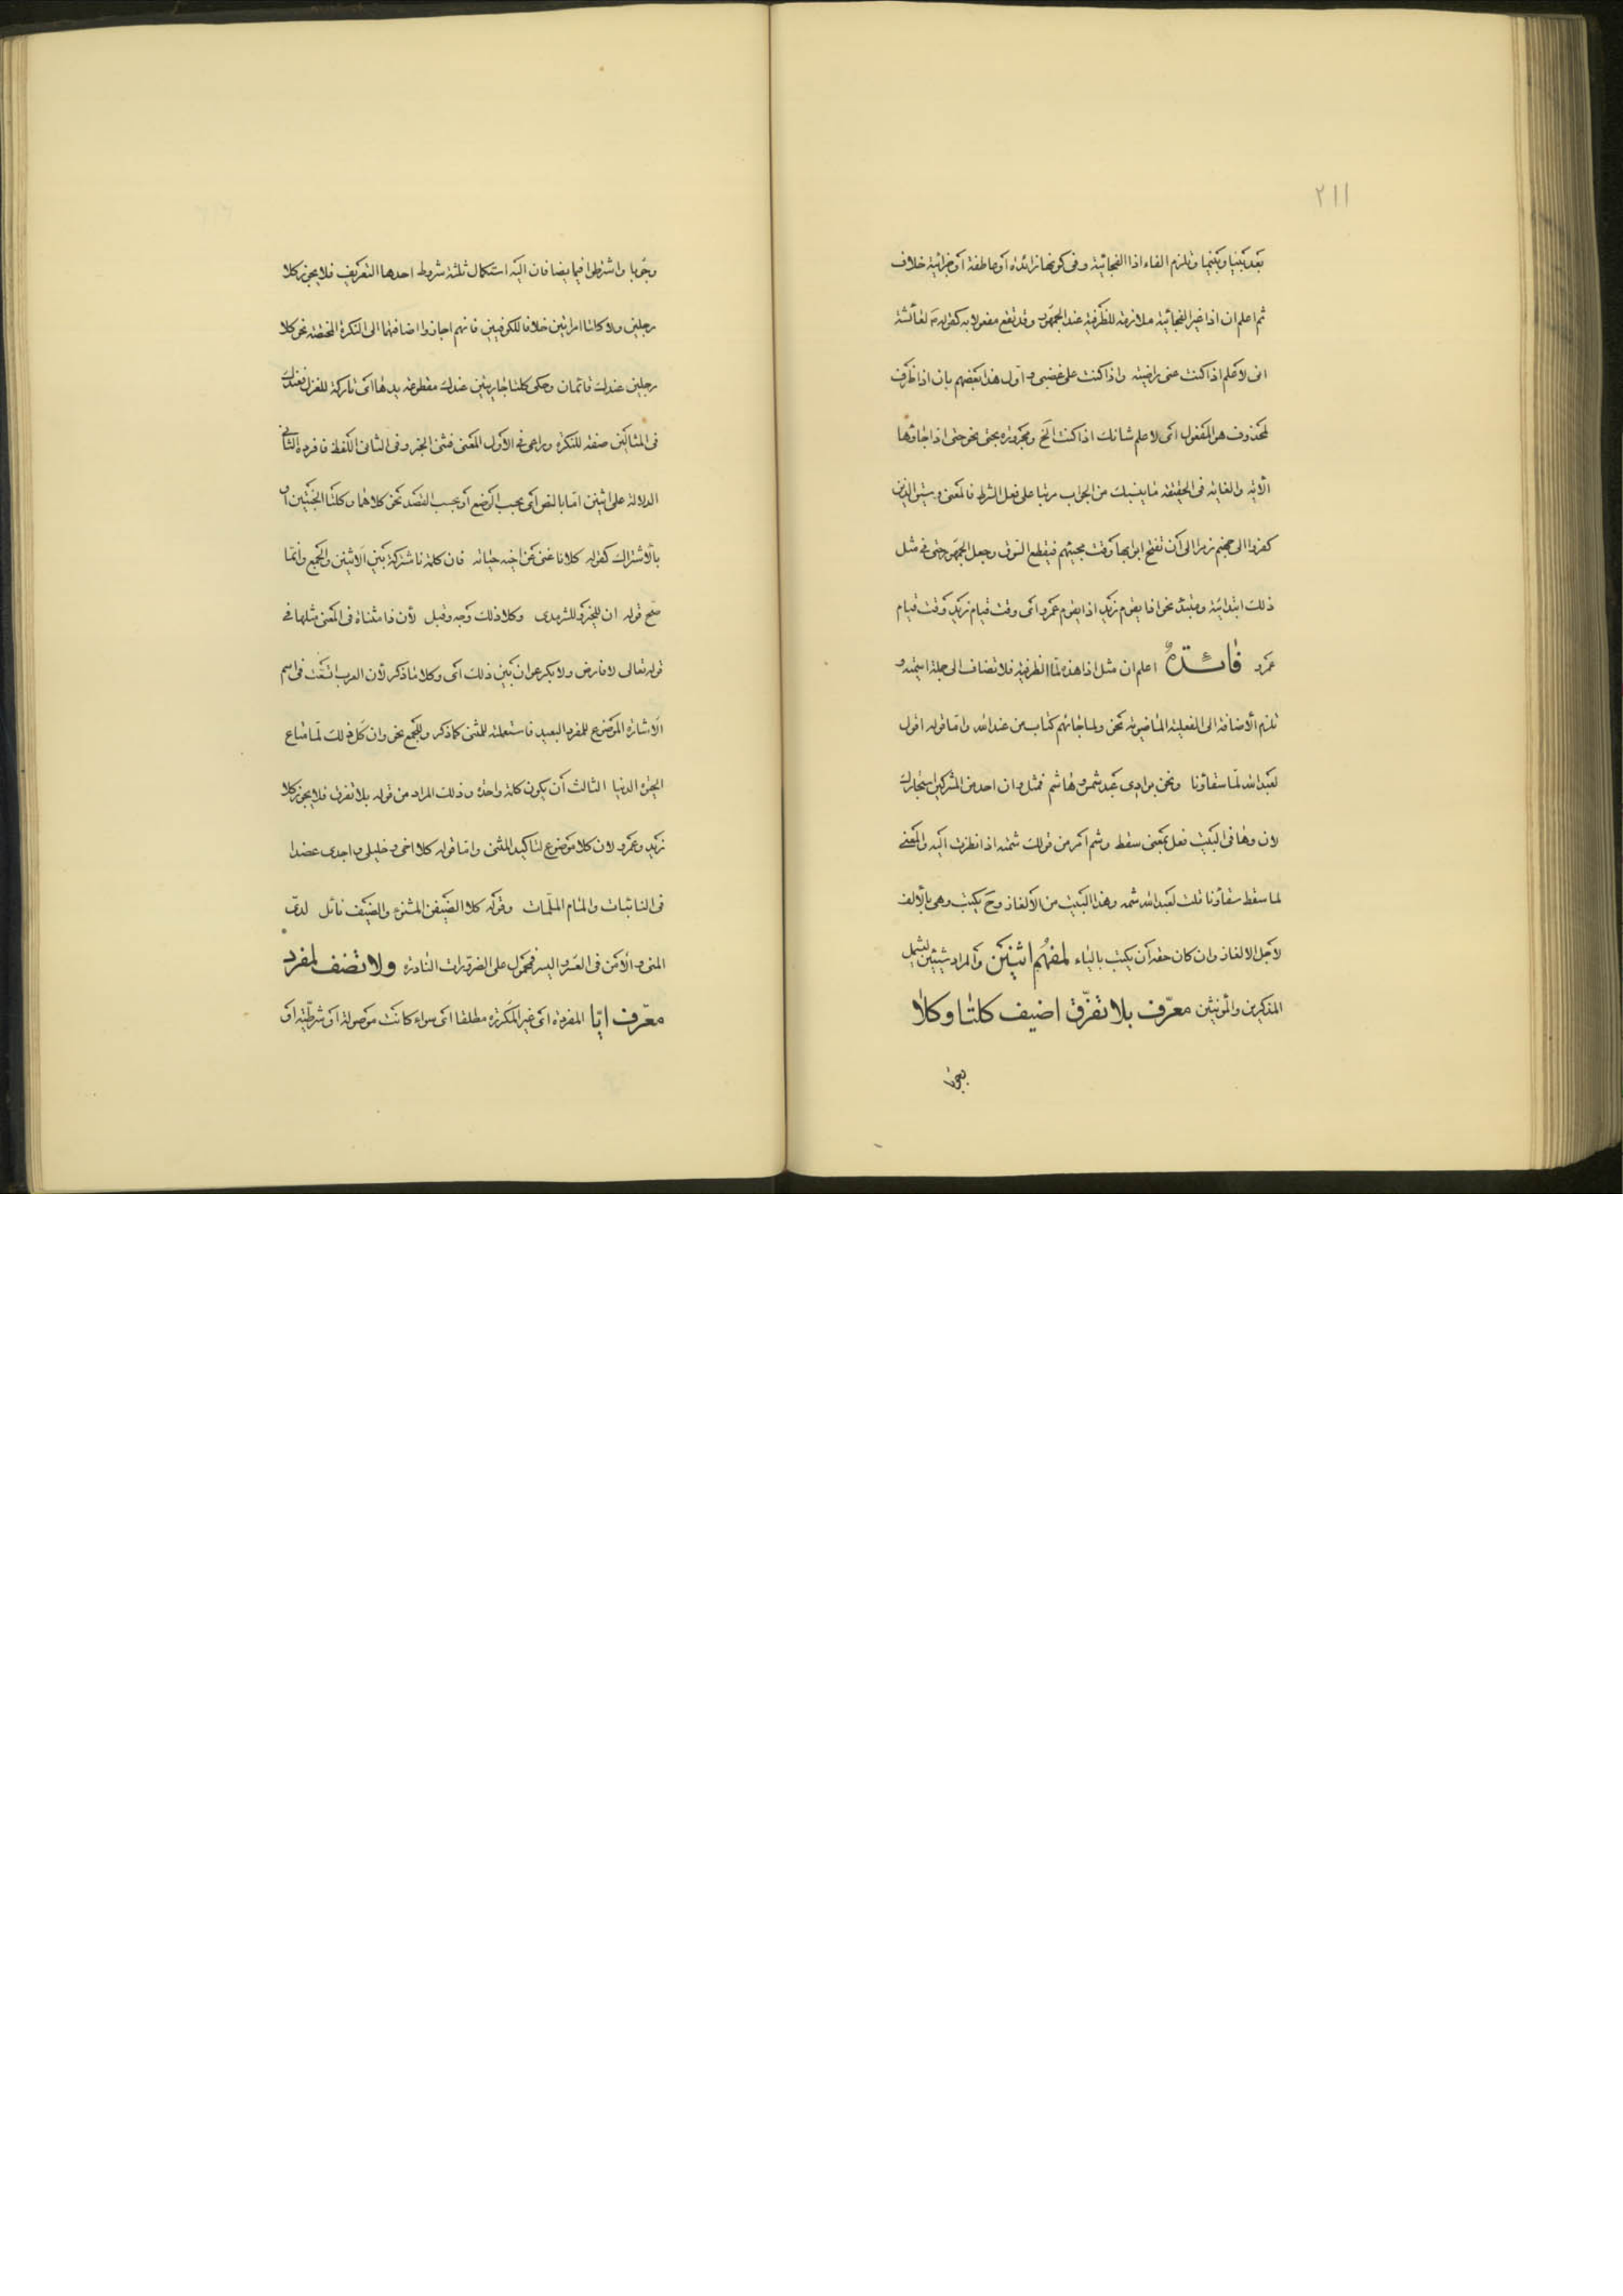 ٢١١
بعد بينا وبينما وتلزم الفاء اذا الفجائية وفى كونها زائدة أو عاطفة أو جزائية خلاف
ثم اعلم ان اذا غير الفجائية ملازمة للظرفية عند الجمهور وقد تقع مفعولا به كقوله ص لعائشة
انى لأعلم اذا كنت عنى راضية واذا كنت على غضبى و اوّل هذا بعضهم بان اذا ظرف
لمحذوف هو المفعول اى لا علم شانك اذا كنت الخ ومجرورة بحتى نحو حتى اذا جاؤها
الآية والغاية فى الحقيقة ما ينسبك من الجواب مرتبا على فعل الشرط فالمعنى وسيق الذين
كفروا الى جهنم زمرا الى أن تفتح ابوابها وقت مجيئهم فيقطع السوق وجعل الجمهور حتى فى مثل
ذلك ابتدائية ومبتدأ نحو اذا يقوم زيد اذا يقوم عمرو اى وقت قيام زيد وقت قيام
عمرو فائدة اعلم ان مثل اذا هذه لمّا الظرفية فلا تضاف الى جملة اسمية و
تلزم الأضافة الى الفعلية الماضوية نحو ولما جائهم كتاب من عند الله وامّا قوله اقول
لعبد الله لمّا سقاؤنا ونحن بوادى عبد شمس وهاشم فمثل وان احد من المشركين استجارك
لان وها فى البيت فعل بمعنى سقط وشم أمر من قولك شمته اذا نظرت اليه والمعنى
لما سقط سقاؤنا قلت لعبد الله شمه وهذا البيت من الألغاز وح يكتب وهى بالألف
لأجل الالغاز وان كان حقه أن يكتب بالياء لمفهم اثنين والمراد شيئين ليشمل
المذكرين والمؤنثين معرّف بلا تفرّق اضيف كلتا وكلا
وجوبا واشترطوا فيما يضافان اليه استكمال ثلثة شروط احدها التعريف فلا يجوز كلا
رجلين ولا كلتا امراتين خلافا للكوفيين فانهم اجازوا اضافتهما الى النكرة المختصة نحو كلا
رجلين عندك قائمان وحكى كلتا جاريتين عندك مقطوعة يدها اى تاركة للغزل فعندك
فى المثالين صفة للنكرة وراعى فى الأول المعنى فثنى الخبر وفى الثانى اللفظ فافرده الثانى
الدلالة على اثنين امّا بالنص اى بحسب الوضع أو بحسب القصد نحو كلاهما وكلتا الجنتين او
بالأشتراك كقوله كلانا غنى عن اخيه حياته فان كلمة نا مشتركة بين الأثنين والجمع وانما
صح قوله ان للخير وللشر مدى وكلا ذلك وجه وقبل لأن ذا مثناة فى المعنى مثلها فى
قوله تعالى لا فارض ولا بكر عوان بين ذلك اى وكلا ما ذكر لأن العرب اتسعت فى اسم
الأشارة الموضوع للمفرد البعيد فاستعملته للمثنى كما ذكر وللجمع نحو وان كل ذلك لمّا متاع
الحيوة الدنيا الثالث أن يكون كلمة واحدة وذلك المراد من قوله بلا تفرق فلا يجوز كلا
زيد وعمرو لان كلا موضوع لتاكيد المثنى وامّا قوله كلا اخى وخليلى واجدى عضدا
فى النائبات والمام الملمّات وقوله كلا الضيفن المشنوء والضيف نائل لدىّ
المنى والأمن فى العسر واليسر فمحمول على الضرورات النادرة ولا تضف لمفرد
معرّف ايّا المفردة اى غير المكررة مطلقا اى سواء كانت موصولة أو شرطية او